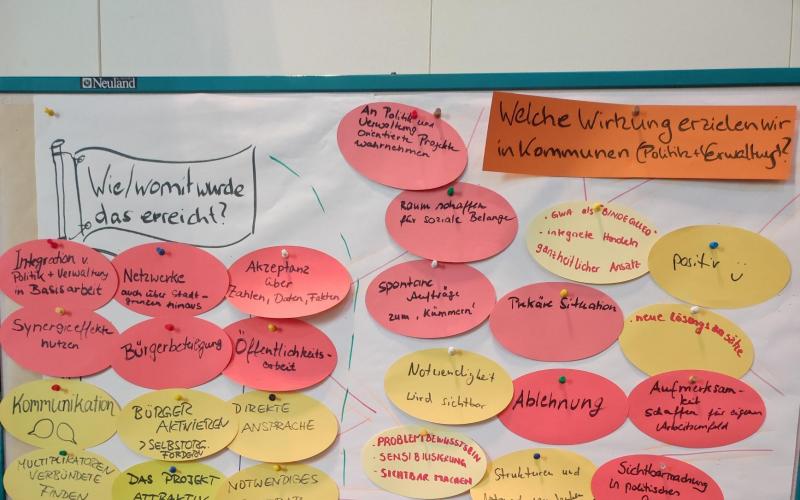 Neuland
Wie/womit wurde
das erreicht?
An Politik und
Verwaltung
orientierte Projekte
wahrnehmen
Welche Wirkung erzielen wir
in Kommunen (Politik + Verwaltung)?
Raum schaffen
für soziale Belange
• GWA als BINDEGLIED
• integrierte Handeln
ganzheitlicher Ansatz
positiv
Integration v.
Politik + Verwaltung
in Basisarbeit
Netzwerke
auch über Stadt-
grenzen hinaus
Akzeptanz
über
Zahlen, Daten, Fakten
spontane
Aufträge
zum 'Kümmern'
Prekäre Situation
• neue Lösungsansätze
Synergieeffekte
nutzen
Bürgerbeteiligung
Öffentlichkeits-
arbeit
Notwendigkeit
wird sichtbar
Ablehnung
Aufmerksam-
keit
schaffen für eigenen
Arbeitsumfeld
Kommunikation
BÜRGER
AKTIVIEREN
> SELBSTORG.
FÖRDERN
DIREKTE
ANSPRACHE
PROBLEMBEWUSSTSEIN
- SENSIBILISIERUNG
- SICHTBAR MACHEN
MULTIPLIKATOREN
VERBÜNDETE
FINDEN
DAS PROJEKT
NOTWENDIGES
Strukturen und
Sichtbarmachung
in politischen